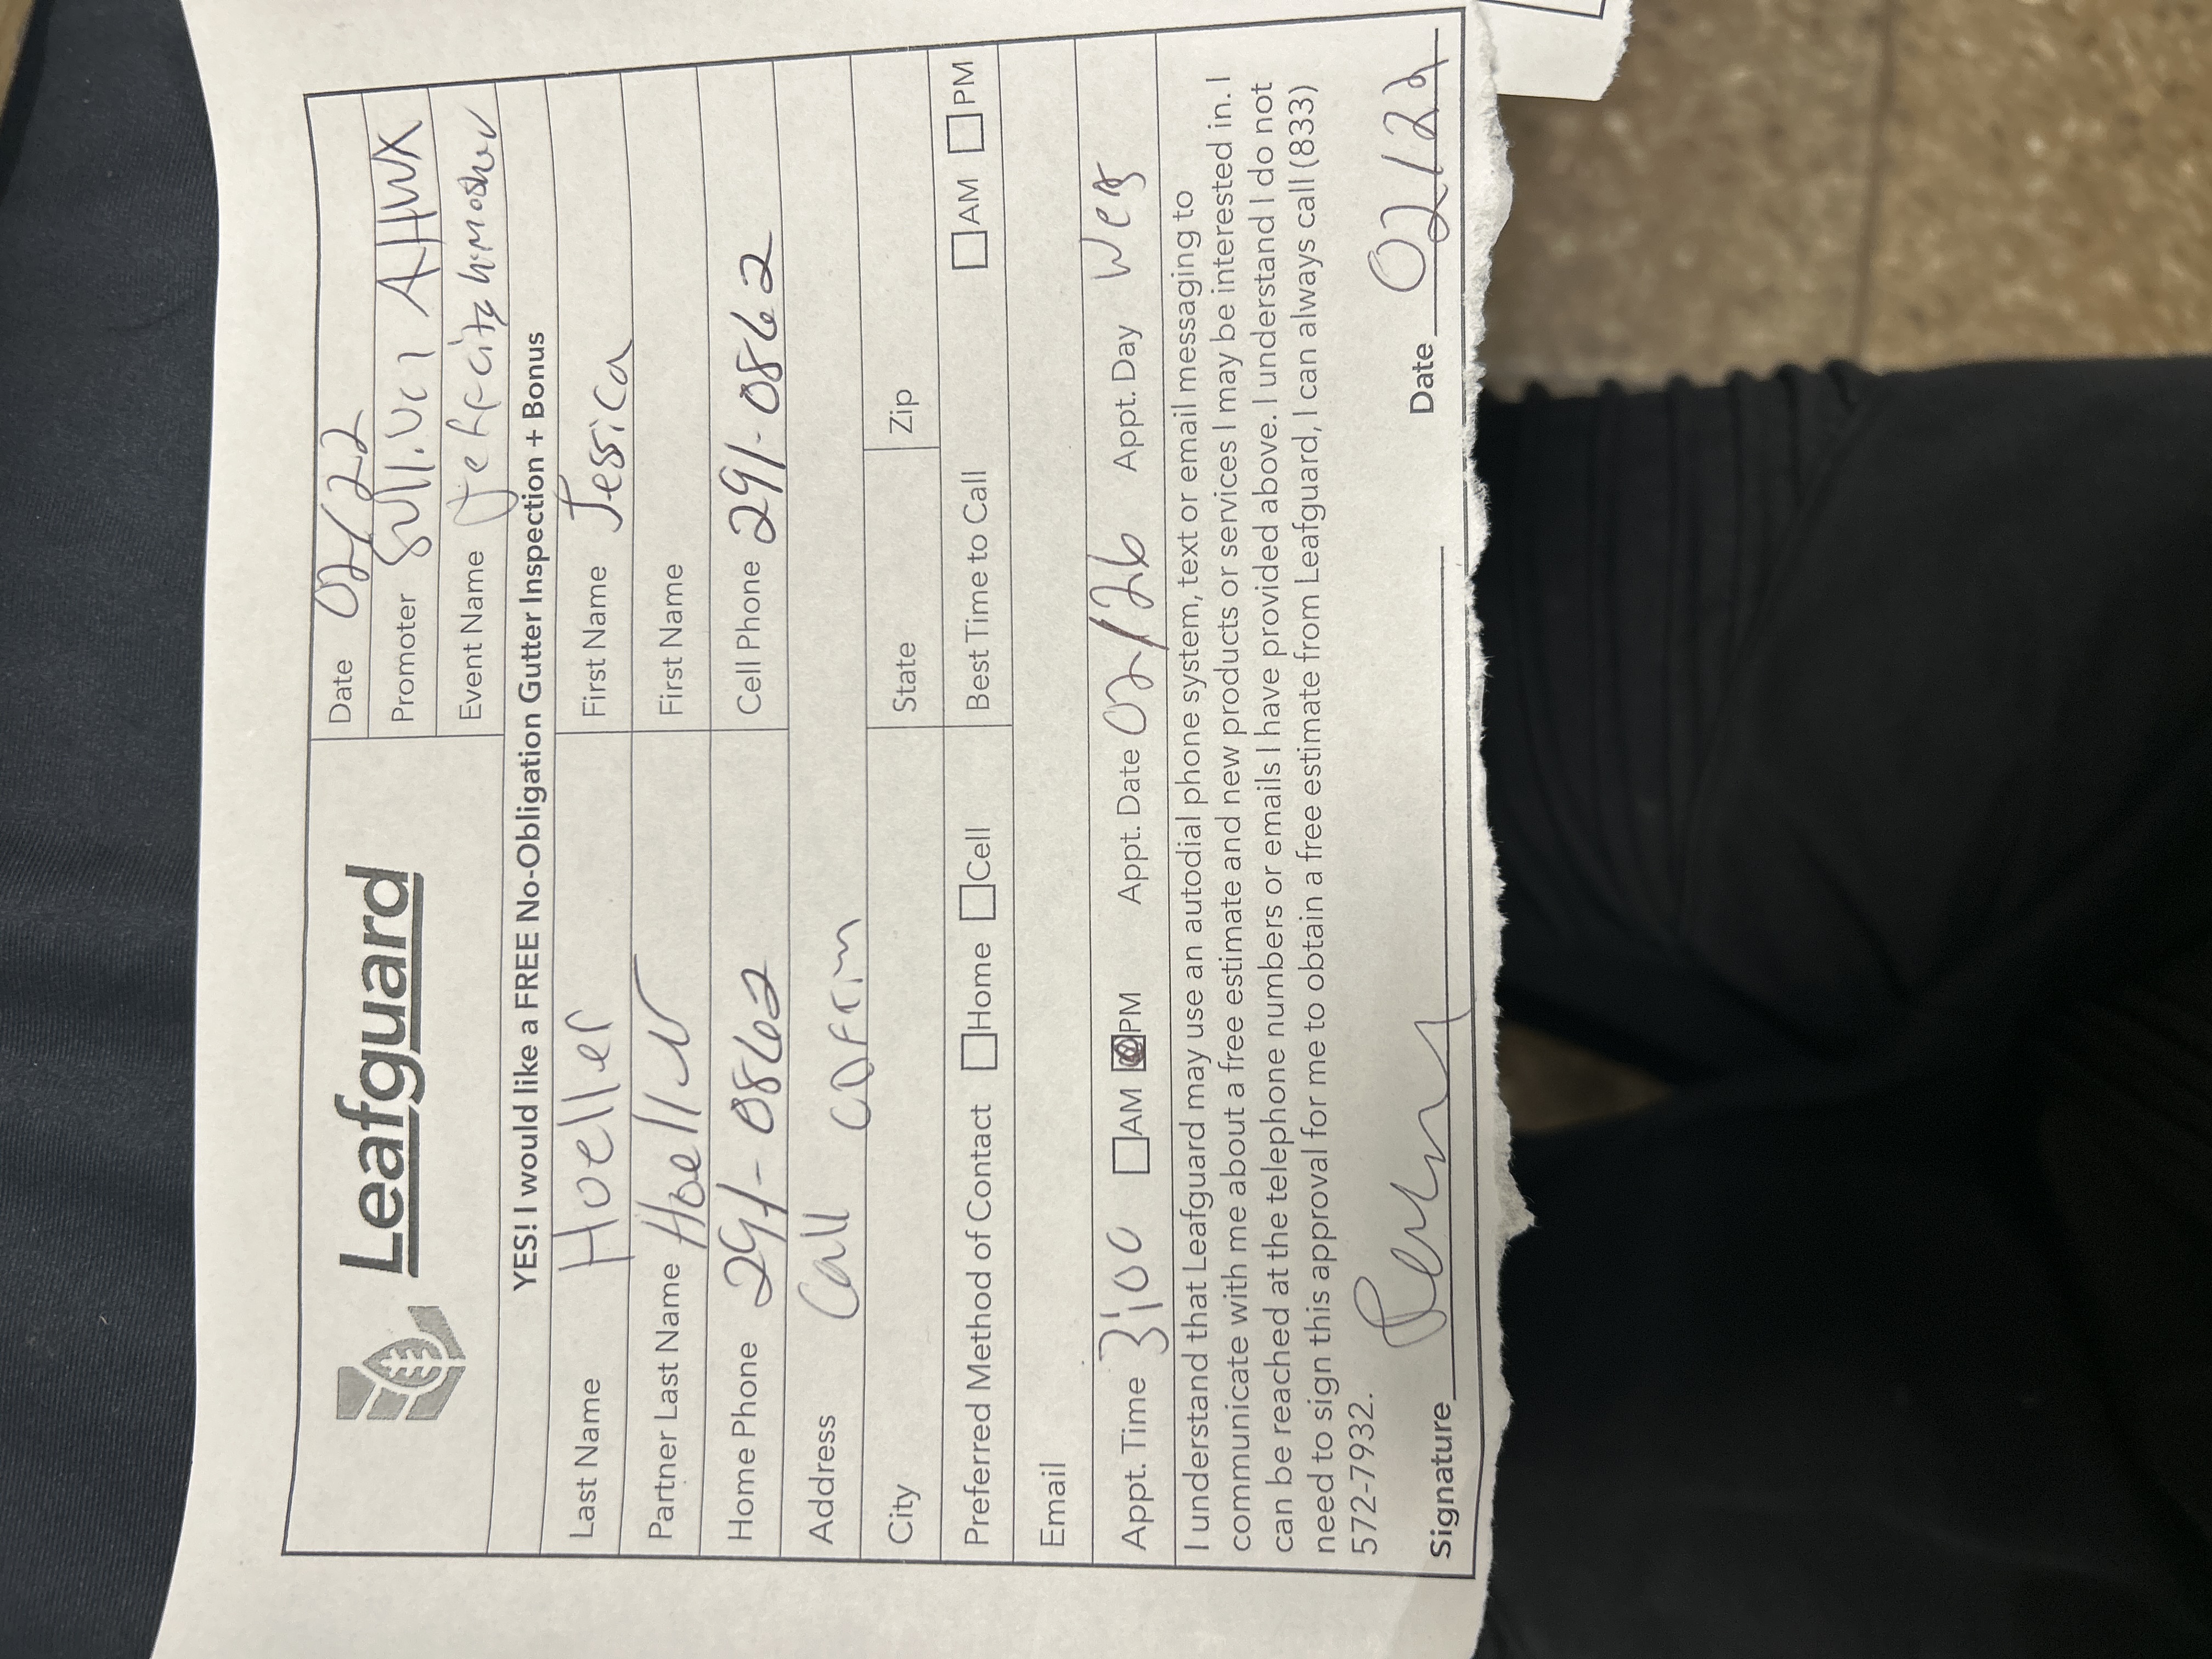 Leafguard
Date 02/22
Promoter AHWX
Event Name
YES! I would like a FREE No-Obligation Gutter Inspection + Bonus
Last Name Hoeller First Name Jessica
Partner Last Name Hoeller First Name
Home Phone 291-0862 Cell Phone 291-0862
Address Call
City State Zip
Preferred Method of Contact Home Cell Best Time to Call AM PM
Email
Appt. Time 3:00 AM PM Appt. Date 02/26 Appt. Day
I understand that Leafguard may use an autodial phone system, text or email messaging to
communicate with me about a free estimate and new products or services I may be interested in. I
can be reached at the telephone numbers or emails I have provided above. I understand I do not
need to sign this approval for me to obtain a free estimate from Leafguard, I can always call (833)
572-7932.
Signature Date 02/22